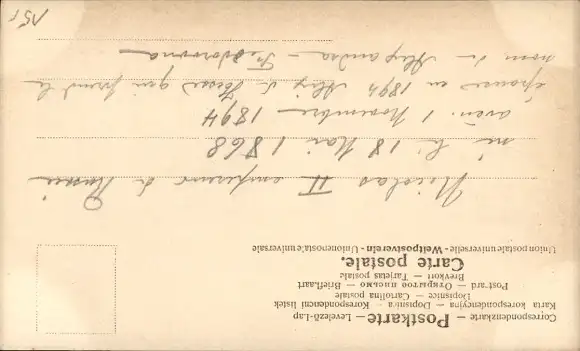 Correspondenzkarte — Levelező-Lap
Postkarte
Karta korespondencyjna — Dopisni a — Korespondencni listek
Dopisnice — Cartolina postale
Post-ard — Открытое письмо — Briefkaart
Brevkort — Tarjetas postale
Carte postale.
Union postale universelle - Weltpostverein - Unione postale universale
Nicolas II empereur de Russie
né le 18 Mai 1868
avèn. 1 Novembre 1894
épouse en 1894 Alix de Hesse qui prend le
nom de — Alexandra — Féodorovna